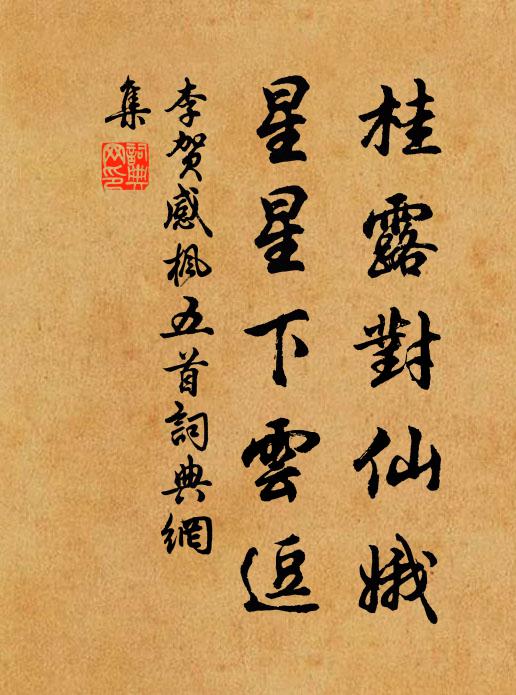 桂露對仙娥
星星下雲逗
李賀感楓五首詞典網
集
詞典
网印